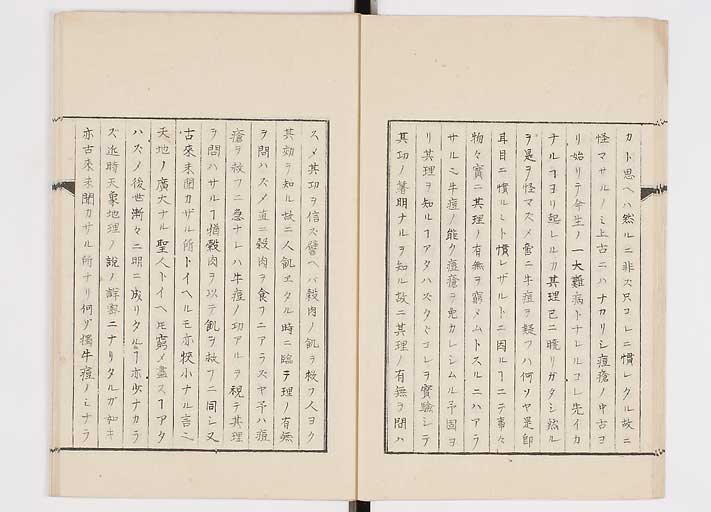 カト思ヘハ然ルニ非ス只コレニ慣レタル故ニ
怪マサルノミ上古ニハナカリシ痘瘡ノ中古ヨ
リ始リテ今生ノ一大難病トナレルコレ先イカ
ナルヿヨリ起レルカ其理已ニ暁リガタシ然ル
ヲ是ヲ怪マスメ啻ニ牛痘ヲ疑フハ何ソヤ是即
耳目ニ慣ルヽト慣レザルトニ因ルヿニテ事々
物々實ニ其理ノ有無ヲ窮メムトスルニハアラ
サルヘシ牛痘ノ能ク痘瘡ヲ免カレシムル予固ヨ
リ其理ヲ知ルヿアタハスタヾコレヲ實驗シテ
其功ノ著明ナルヲ知ル故ニ其理ノ有無ヲ問ハ
スメ其功ヲ信ス譬ヘバ穀肉ノ飢ヲ救フ人ヨク
其効ヲ知ル故ニ人飢ヱタル時ニ臨テ理ノ有無
ヲ問ハスメ直ニ穀肉ヲ食フニアラスヤ予ハ痘
瘡ヲ救フニ急ナレハ牛痘ノ功アルヲ視テ其理
ヲ問ハサルヿ猶穀肉ヲ以テ飢ヲ救フニ同シ又
古來未聞カザル所トイヘルモ亦狹小ナル言ニ
天地ノ廣大ナル聖人トイヘ𪜈窮メ盡スヿアタ
ハスメ後世漸々ニ明ニ成リタルヿ亦少ナカラ
ズ近時天象地理ノ說ノ詳密ニナリタルガ如キ
亦古來未聞カサル所ナリ何ゾ獨牛痘ノミナラ